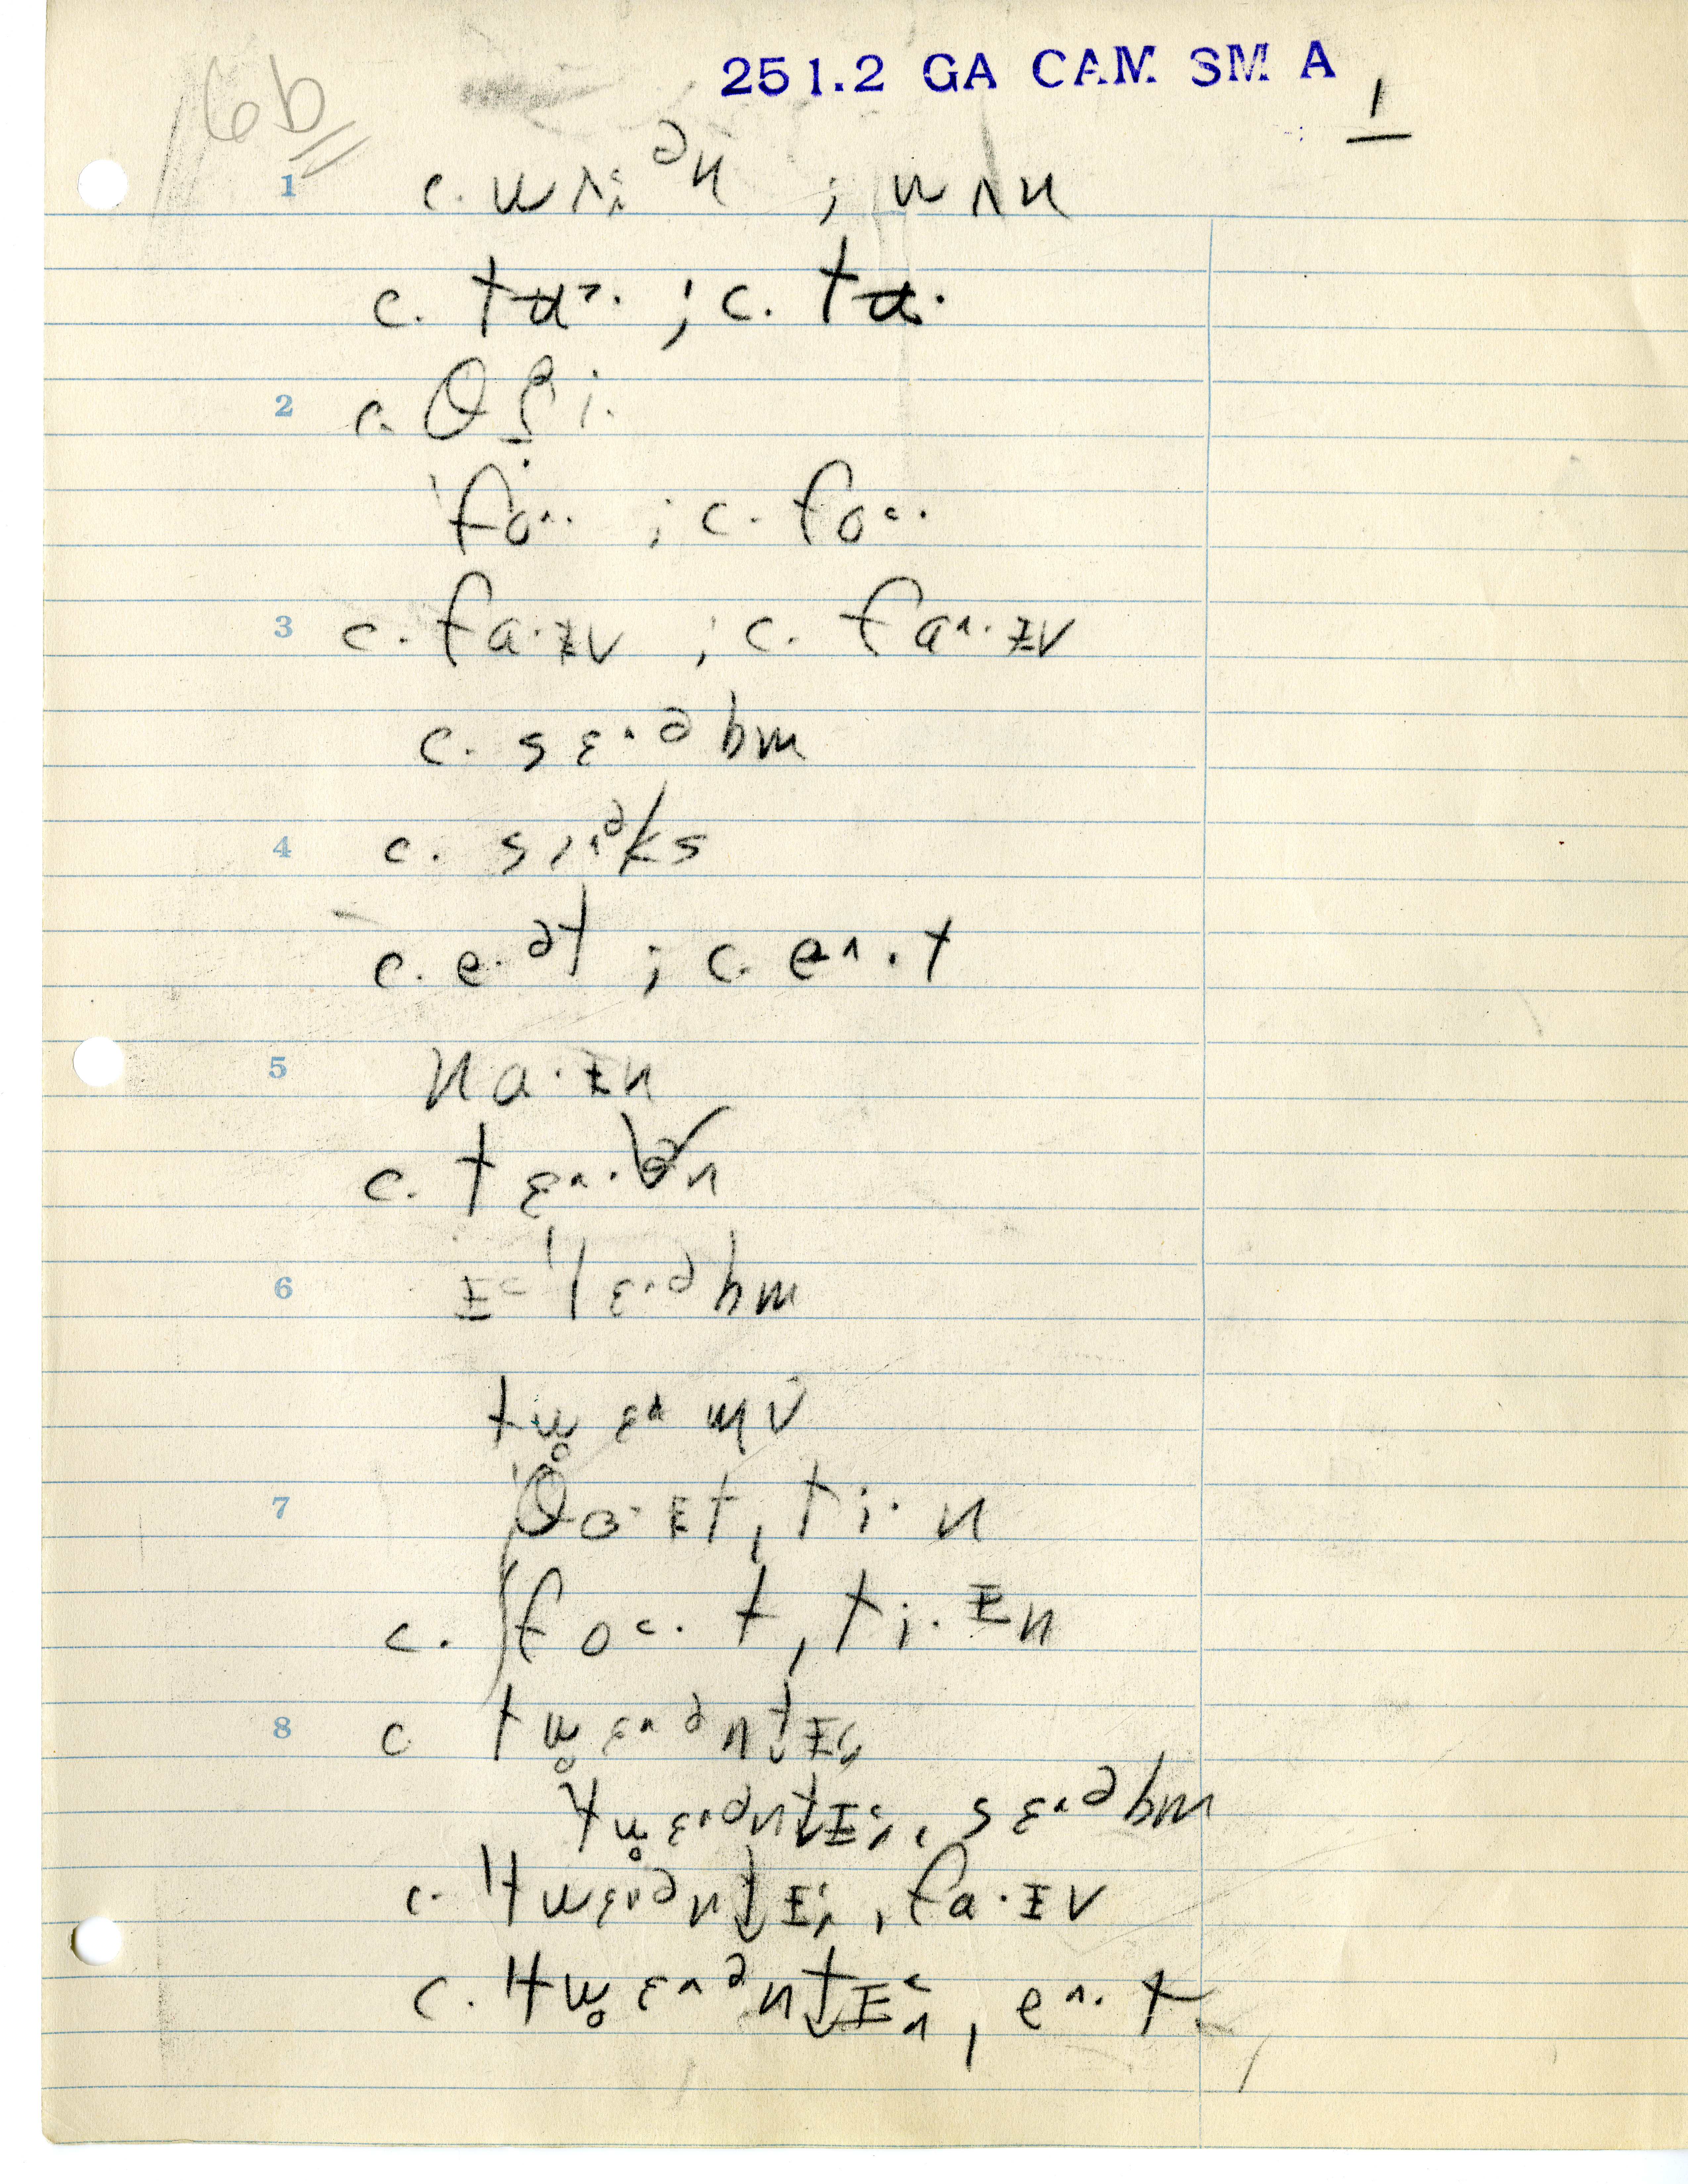 251.2 GA CAM SM A
6b
1
1 c. wʌ˔ᵊn ; wʌn
c. tʉ˃· ; c. tʉ·
2 c. θ i·
'fo^· ; c. fo˂·
3 c. fa·ɪv ; c. fa^·ɪv
c. sɛ^·ᵊbm
4 c. sɪ^ᵊks
c. e·ᵊt ; c. e^·t
5 na·ɪn
c. tɛ^·ᵊn
6 ɪ˂'lɛ^·ᵊbm
tw̥ɛ^mv
7 'θɔ·ɪt, ti·n
c. fo˂·t, ti·ɪn
8 c tw̥ɛ^ᵊnt̬ɪ
tw̥ɛ^ᵊnt̬ɪ, sɛ^ᵊbm
c. 'twɛ^ᵊnt̬ɪ, fa·ɪv
c. 'tw̥ɛ^ᵊnt̬ɪ, e^·t